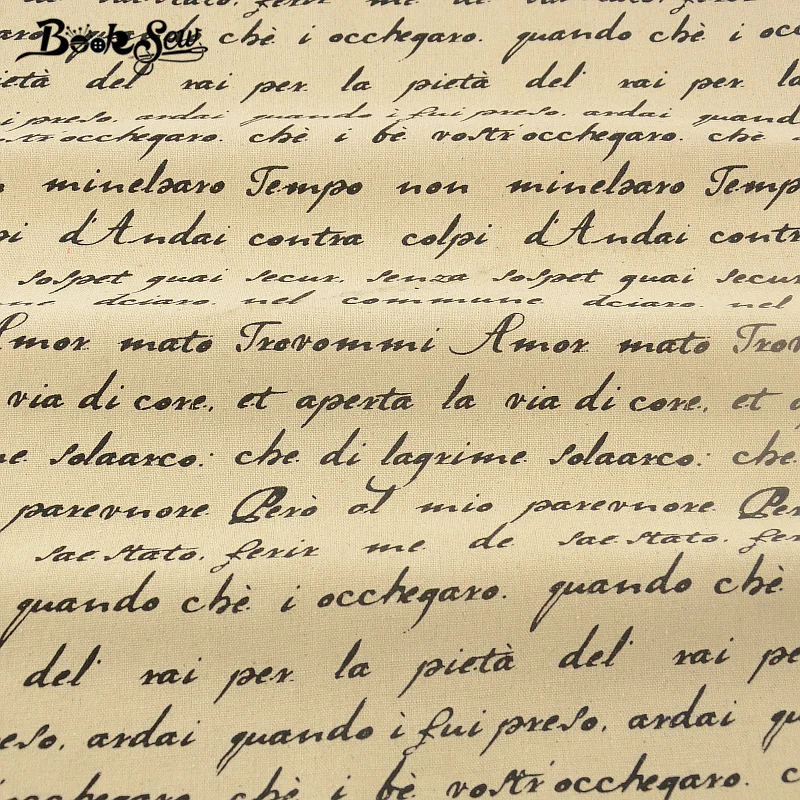 Book Sew
chè i occhegaro. quando chè i occ
ietà del' rai per la pietà del' rai per la
i preso, ardai quando i fui preso, ardai quand
occhegaro. chè i bè vostr'occhegaro. chè
minelsaro Tempo non minelsaro Temp
pi d'Andai contra colpi d'Andai contr
sospet guai secur, senza sospet guai secur
dciaro. nel commune dciaro. nel
Amor mato Trovommi Amor mato Trov
via di core, et aperta la via di core, et a
me solaarco: che di lagrime solaarco: che
parevnore Però al mio parevnore Per
sae stato, ferir me de sae stato, fer
quando chè i occhegaro. quando chè
del' rai per la pietà del' rai pe
eso, ardai quando i fui preso, ardai qu
occhegaro. chè i bè vostr'occhegaro. c